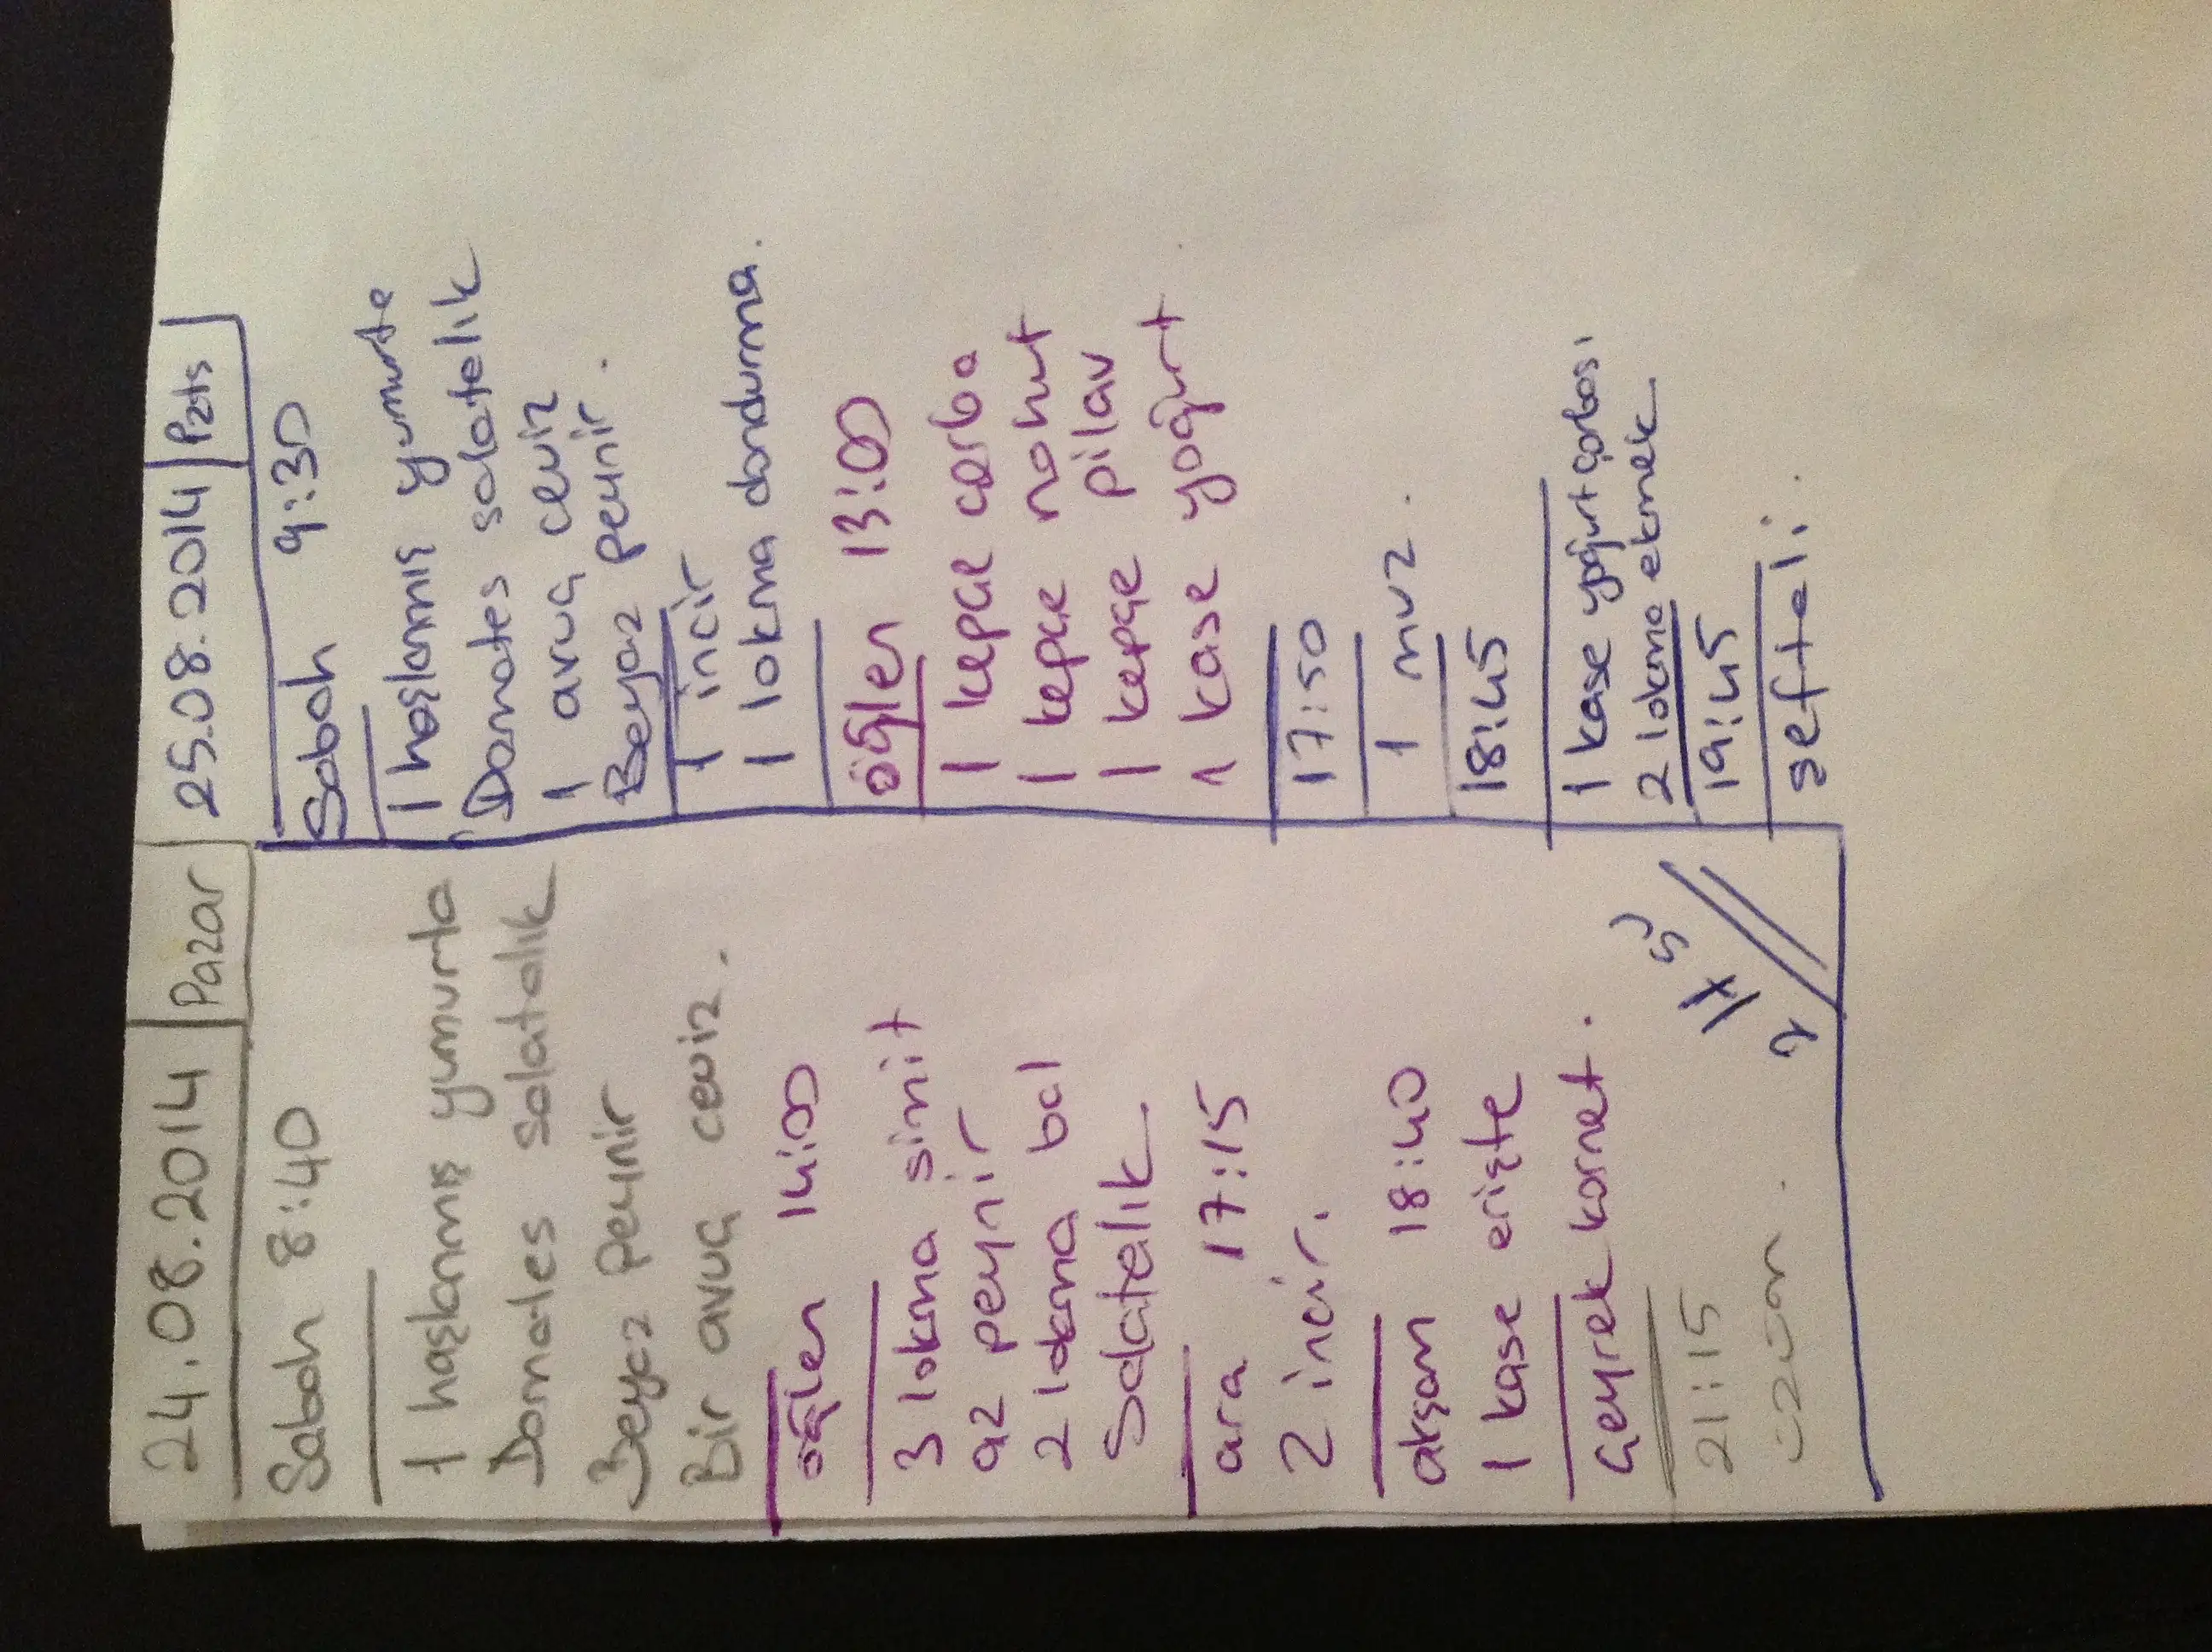 24.08.2014 Pazar
Sabah 8:40
1 haşlanmış yumurta
Domates salatalık
Beyaz peynir
Bir avuç ceviz.
öğlen 14:00
3 lokma simit
az peynir
2 lokma bal
Salatalık
ara 17:15
2 incir.
akşam 18:40
1 kase erişte
Çeyrek kornet.
21:15
üzüm.
25.08.2014 Pzts
Sabah 9:30
1 haşlanmış yumurta
Domates salatalık
1 avuç ceviz
Beyaz peynir.
1 incir
1 lokma dondurma.
öğlen 13:00
1 kepçe çorba
1 kepçe nohut
1 kepçe pilav
1 kase yoğurt
17:50
1 muz.
18:45
1 kase yoğurt çorbası
2 lokma ekmek
19:45
şeftali.